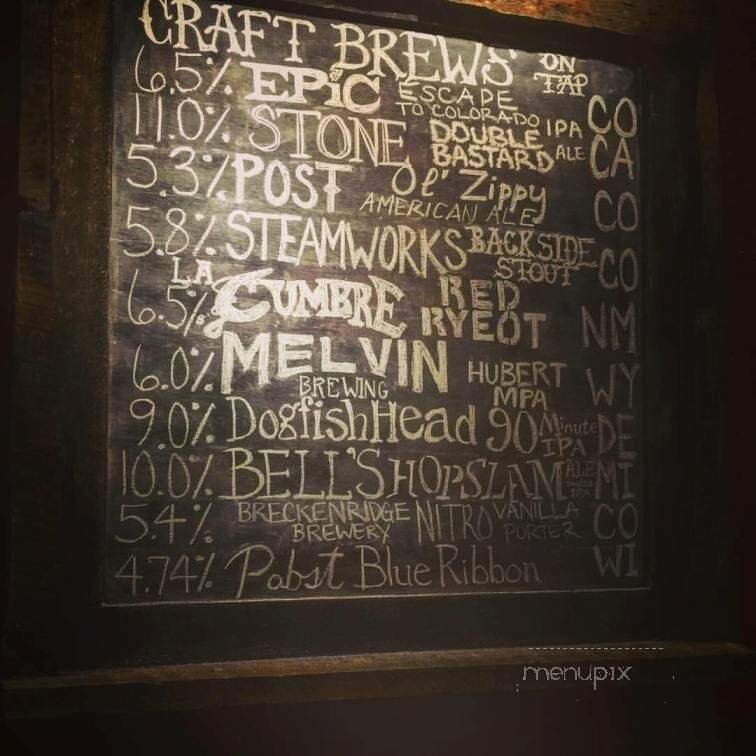 CRAFT BREWS ON TAP
6.5% EPIC ESCAPE TO COLORADO IPA CO
11.0% STONE DOUBLE BASTARD ALE CA
5.3% POST Ol' Zippy AMERICAN ALE CO
5.8% STEAMWORKS BACKSIDE STOUT CO
6.5% LA CUMBRE RED RYEOT NM
6.0% MELVIN BREWING HUBERT MPA WY
9.0% DogfishHead 90 Minute IPA DE
10.0% BELL'S HOPSLAM ALE MI
5.4% BRECKENRIDGE BREWERY NITRO VANILLA PORTER CO
4.74% Pabst Blue Ribbon WI
menupix